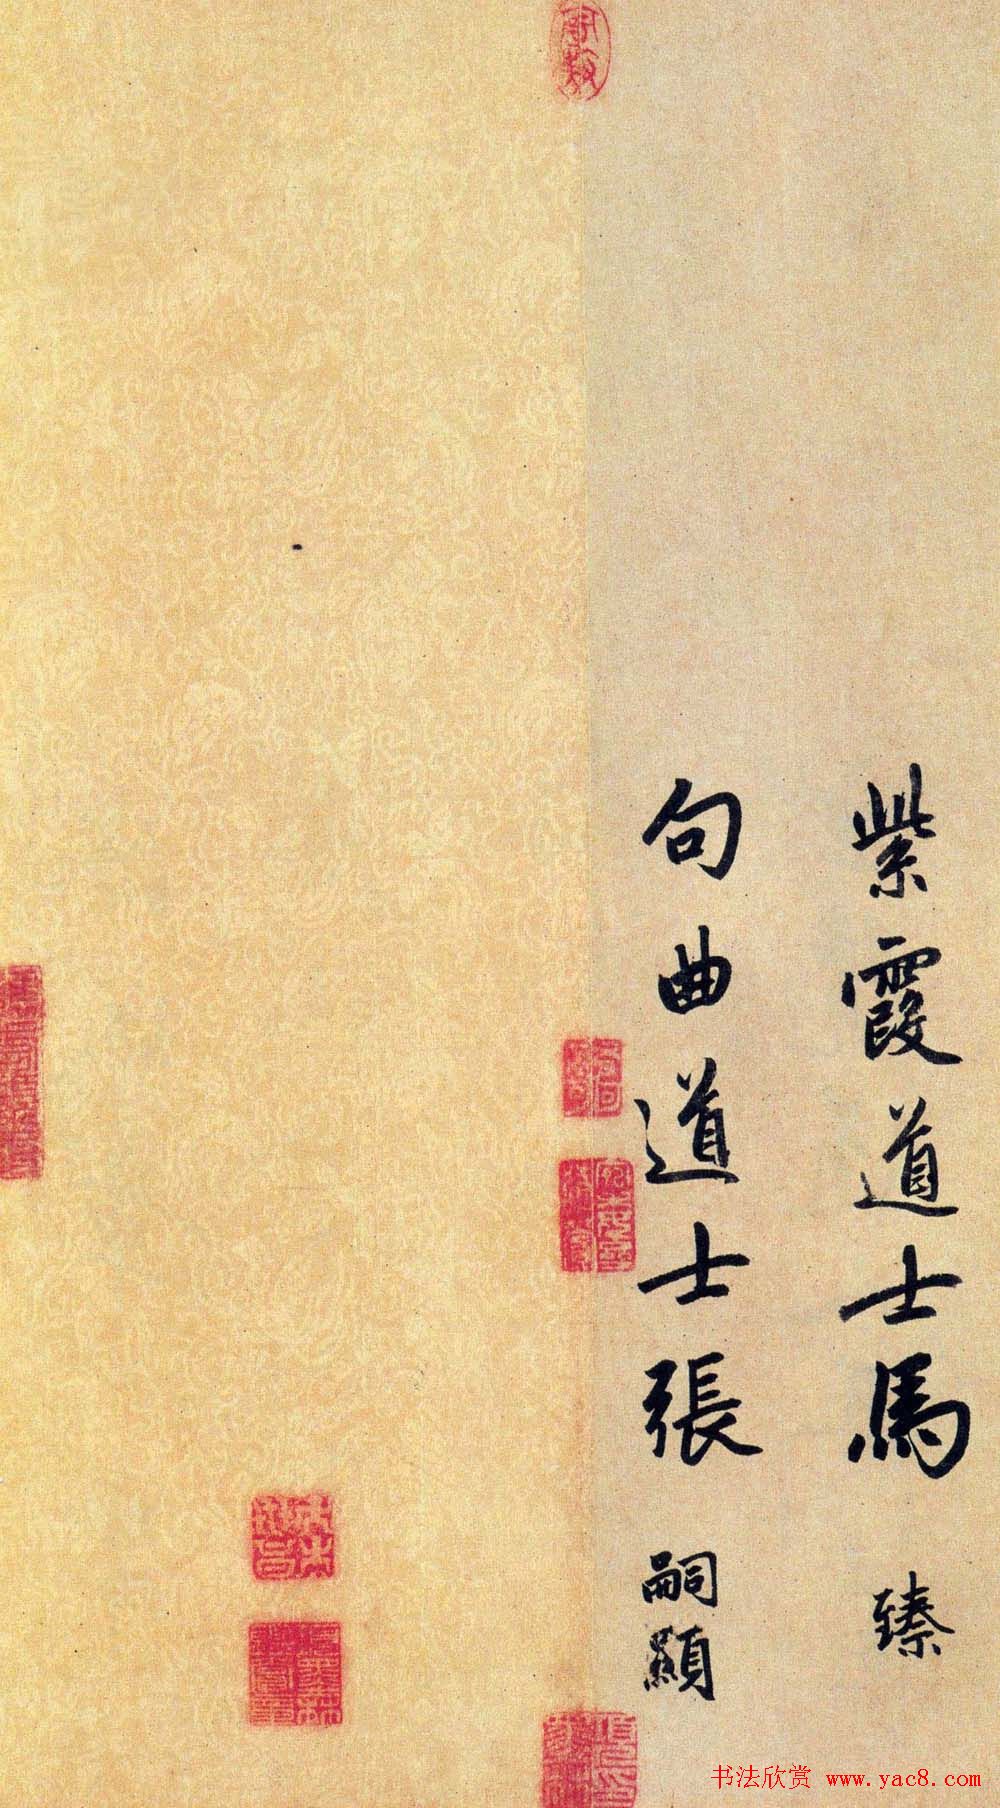 紫霞道士馬臻
句曲道士張嗣顯
书法欣赏 www.yac8.com